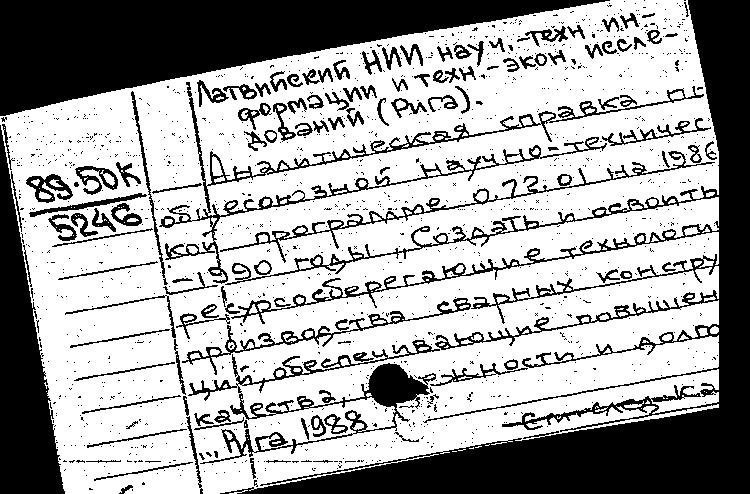 Латвийский НИИ науч.-техн. ин-
формации и техн.-экон. иссле-
дований (Рига).
Аналитическая справка по
89-50К
5246
общесоюзной научно-техничес
кой программе 0.72.01 на 1986
-1990 годы „Создать и освоить
ресурсосберегающие технологи
производства сварных констру
ций, обеспечивающие повышен
качества, н ежности и долго
... Рига, 1988.